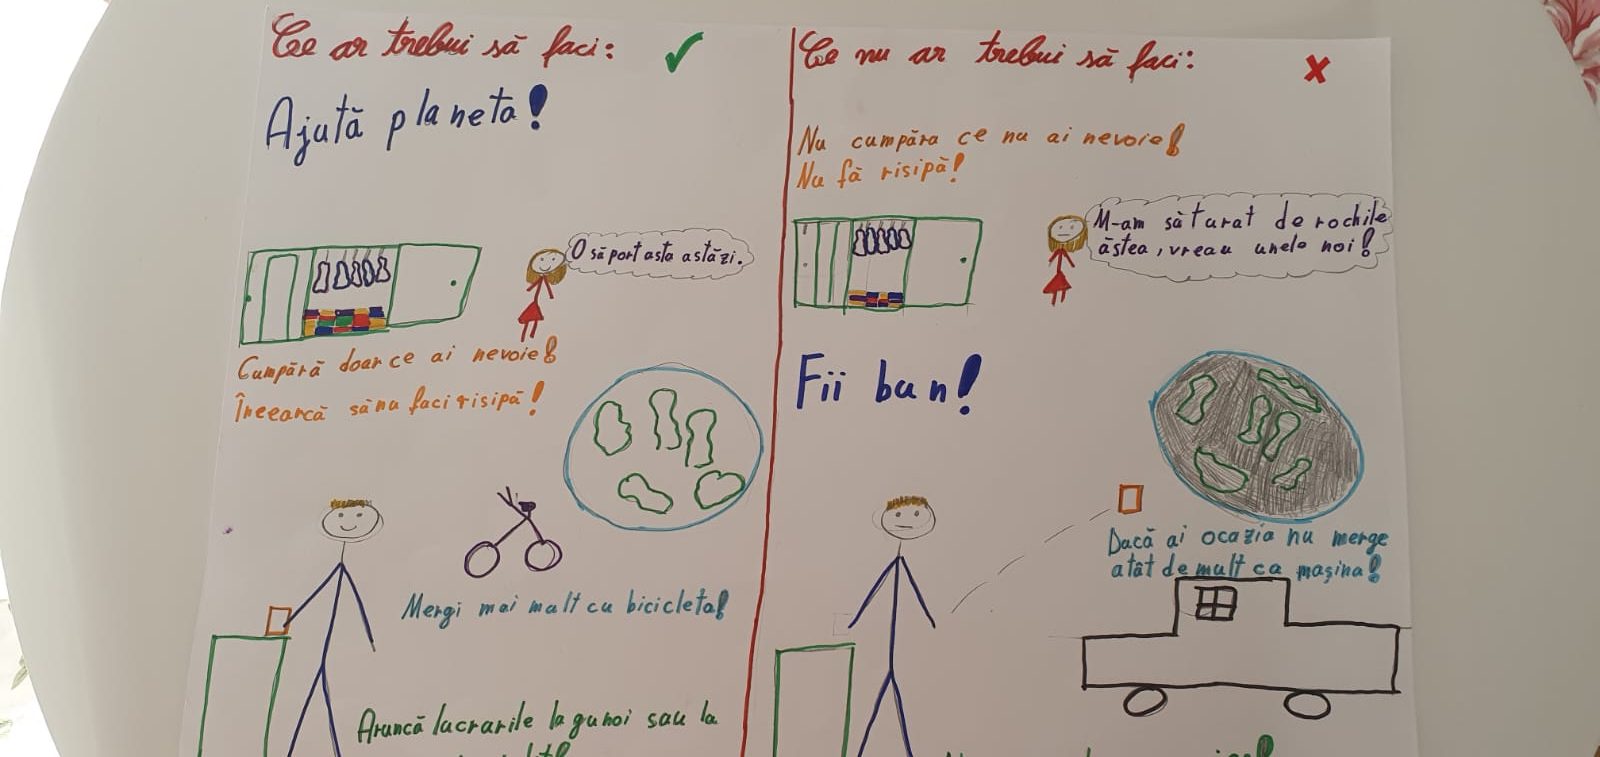 Ce ar trebui să faci:
Ajută planeta!
O să port asta astăzi.
Cumpără doar ce ai nevoie!
Înceearcă să nu faci risipă!
Mergi mai mult cu bicicleta!
Aruncă lucrarile la gunoi sau la
Ce nu ar trebui să faci:
Nu cumpăra ce nu ai nevoie!
Nu fă risipă!
M-am săturat de rochile
ăstea, vreau unele noi!
Fii bun!
Dacă ai ocazia nu merge
atât de mult ca mașina!